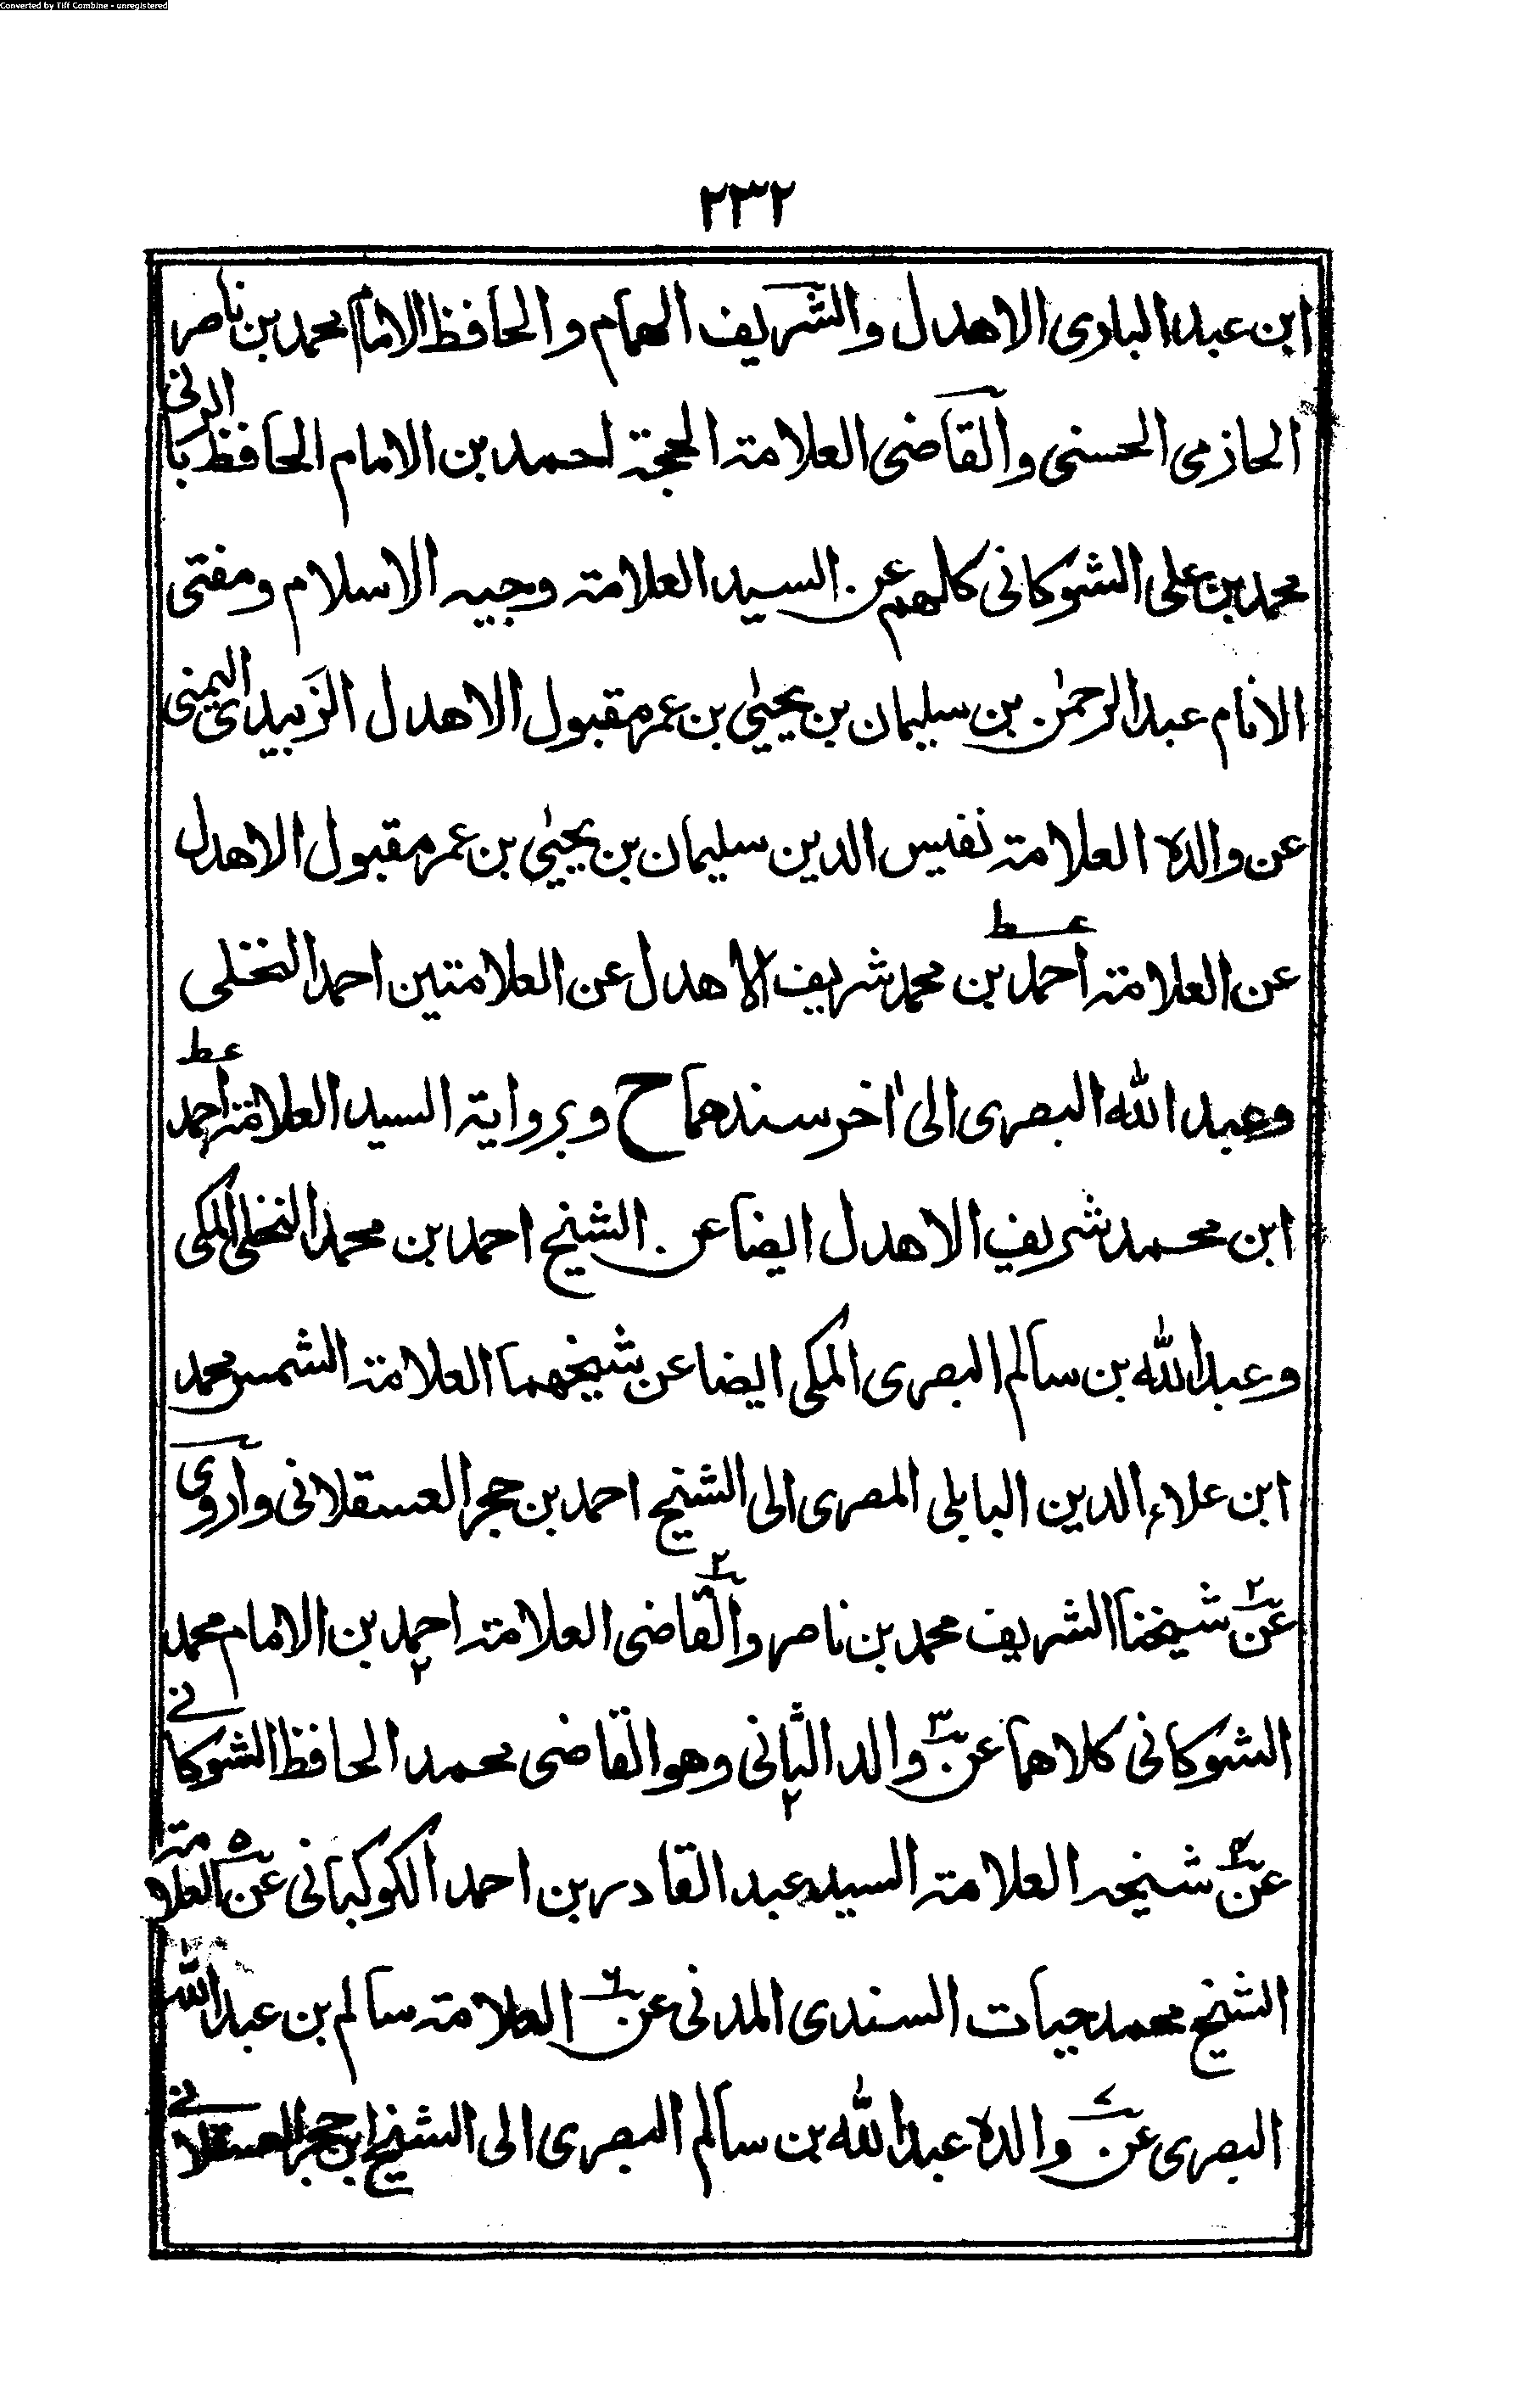 Converted by Tiff Combine - unregistered
٢٣٢
ابن عبد الباري الاهدل والشريف الهمام والحافظ الامام محمد بن ناصر
الحازمي الحسني والقاضي العلامة الحجة احمد بن الامام الحافظ الربانى
محمد بن علي الشوكاني كلهم عن السيد العلامة وجيه الاسلام ومفتى
الانام عبد الرحمٰن بن سليمان بن يحيىٰ بن عمر مقبول الاهدل الزَبيدى اليمنى
عن والده العلامة نفيس الدين سليمان بن يحيىٰ بن عمر مقبول الاهدل
عن العلامة احمد بن محمد شريف الاهدل عن العلامتين احمد النخلى
وعبد الله البصرى الىٰ اخر سندهما ح وبرواية السيد العلامة احمد
ابن محمد شريف الاهدل ايضا عن الشيخ احمد بن محمد النخلى المكى
وعبد الله بن سالم البصرى المكى ايضا عن شيخهما العلامة الشمس محمد
ابن علاء الدين البابلى المصرى الى الشيخ احمد بن حجر العسقلانى واروى
عن شيخنا الشريف محمد بن ناصر والقاضى العلامة احمد بن الامام محمد
الشوكانى كلاهما عن والد الثانى وهو القاضى محمد الحافظ الشوكانے
عن شيخه العلامة السيد عبد القادر بن احمد الكوكبانى عن العلامة
الشيخ محمد حيات السندى المدنى عن العلامة سالم بن عبد الله
البصرى عن والده عبد الله بن سالم البصرى الى الشيخ ابن حجر العسقلانے